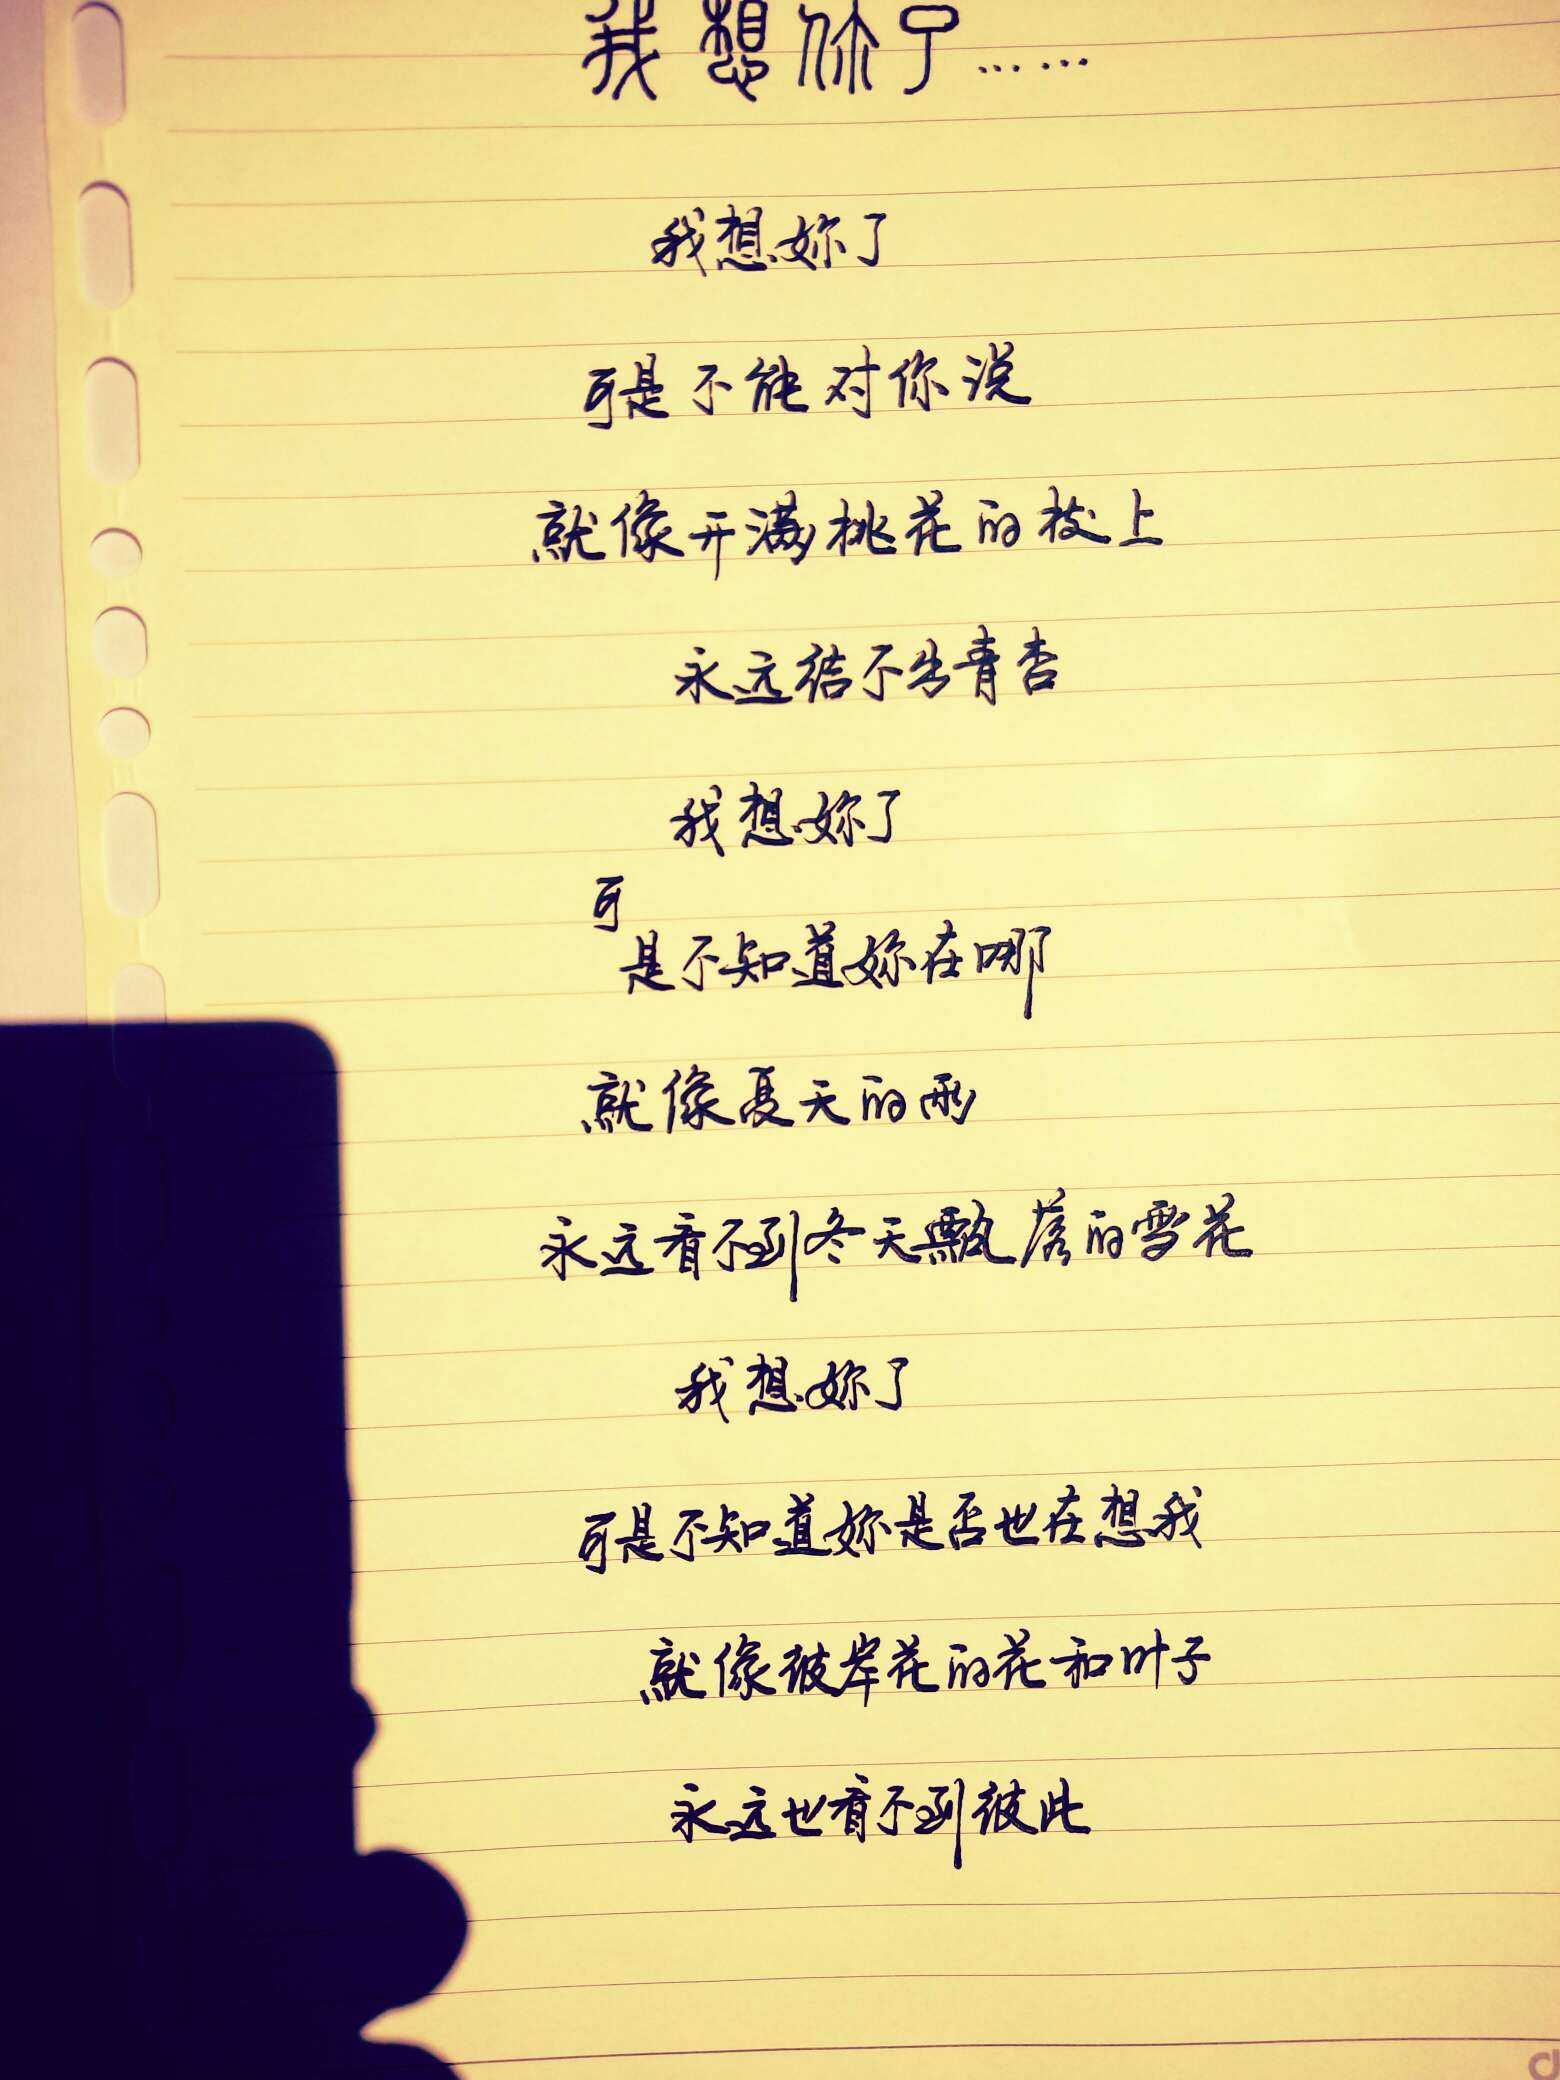 我想你了……
我想妳了
可是不能对你说
就像开满桃花的枝上
永远结不出青杏
我想妳了
可
是不知道妳在哪
就像夏天的雨
永远看不到冬天飘落的雪花
我想妳了
可是不知道妳是否也在想我
就像彼岸花的花和叶子
永远也看不到彼此